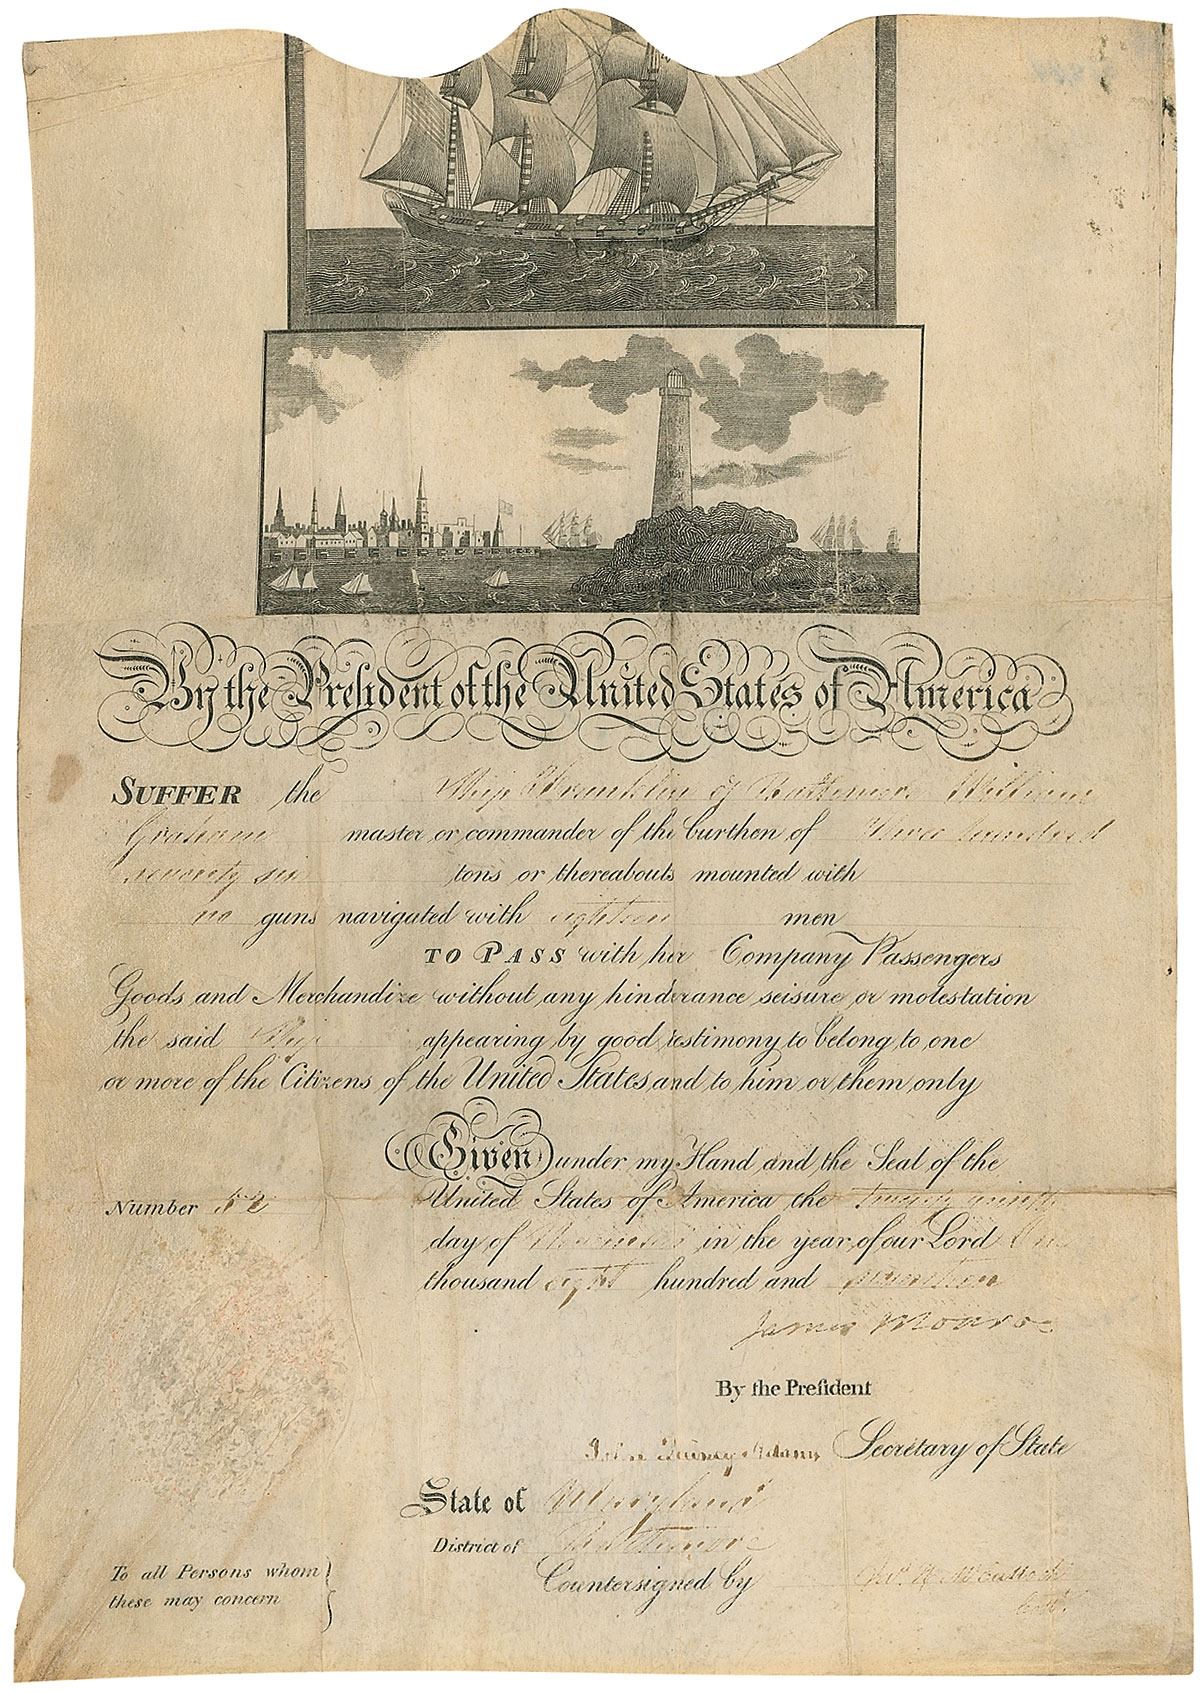 By the President of the United States of America
SUFFER the Ship Franklin of Baltimore William
Graham master or commander of the burthen of Three hundred
seventy six tons or thereabouts mounted with
no guns navigated with eighteen men
TO PASS with her Company Passengers
Goods and Merchandize without any hinderance seisure or molestation
the said Ship appearing by good testimony to belong to one
or more of the Citizens of the United States and to him or them only
Given under my Hand and the Seal of the
United States of America the Twenty ninth
Number 52
day of November in the year of our Lord One
thousand eight hundred and seventeen
James Monroe
By the President
John Quincy Adams Secretary of State
State of Maryland
District of Baltimore
To all Persons whom
these may concern
Countersigned by Jas. H. McCulloch